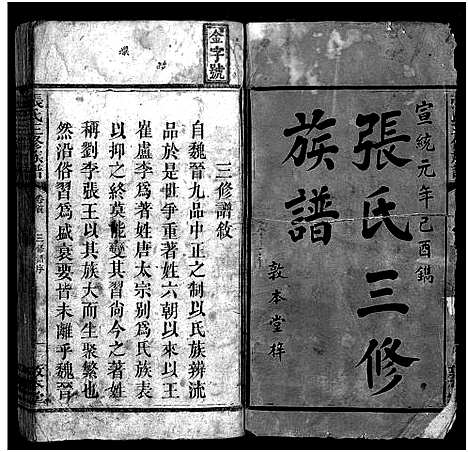 宣統元年己酉鐫
張氏三修
族譜
敦本堂梓
金字號
三修譜敘
自魏晉九品中正之制以氏族辨流
品於是世爭重著姓六朝以來以王
崔盧李為著姓唐太宗别為氏族表
以抑之終莫能變其習尚今之著姓
稱劉李張王以其族大而生聚繁也
然沿俗習為盛衰要皆未離乎魏晉